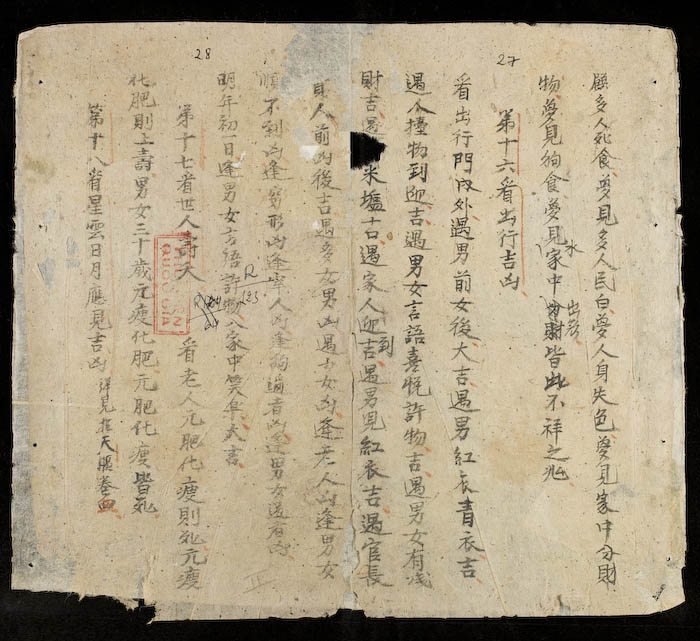 27
頋多人死食夢見多人民白夢人身失色夢見家中分財
物夢見狗食夢見家中水出皆此不祥之兆
第十六看出行吉凶
看出行門內外遇男前女後大吉遇男紅衣青衣吉
遇人擡物到迎吉遇男女言語喜悅許物吉遇男女有
財吉遇米塩吉遇家人迎到吉遇男見紅衣吉遇官長
28
財人前凶後吉遇多女男凶遇少女凶逢老人凶逢男女
順不到凶逢穷形凶逢宰人凶逢狗過者凶逢男女
明年初一日逢男女言語許物入家中笑樂大吉
第十七看世人壽夭 看老人元肥化瘦則死元瘦
化肥則上壽男女三十歲元瘦化肥元肥化瘦皆死
第十八看星雲日月應見吉凶
R